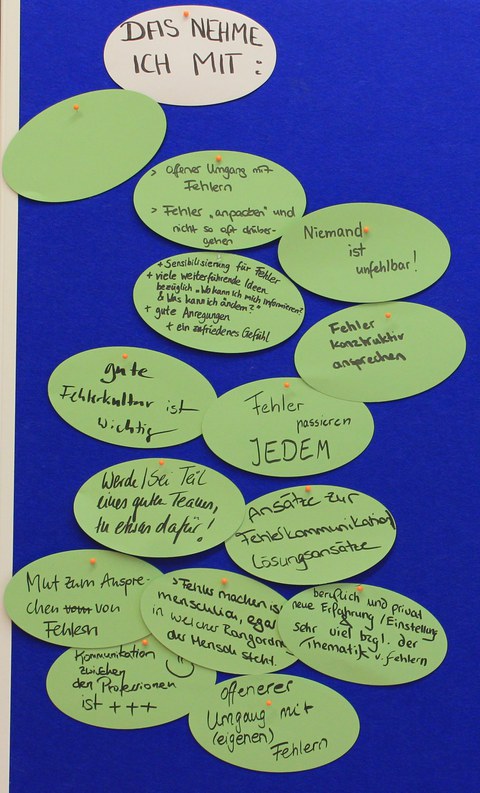 DAS NEHME
ICH MIT :
> offener Umgang mit
Fehlern
> Fehler „anpacken" und
nicht so oft drüber-
gehen
Niemand
ist
unfehlbar!
+ Sensibilisierung für Fehler
+ viele weiterführende Ideen
bezüglich „Wo kann ich mich informieren?
& Was kann ich ändern?"
+ gute Anregungen
+ ein zufriedenes Gefühl
Fehler
konztruktiv
ansprechen
gute
Fehlerkultur ist
wichtig
Fehler
passieren
JEDEM
Werde/Sei Teil
eines guten Teams,
tu etwas dafür!
Ansätze zur
Fehlerkommunikation
Lösungsansätze
Mut zum Anspre-
chen vom von
Fehlern
> Fehler machen ist
menschlich, egal
in welcher Rangordn
der Mensch steht.
beruflich und privat
neue Erfahrung/Einstellung
&
sehr viel bzgl. der
Thematik v. Fehlern
Kommunikation
zwischen
den Professionen
ist +++
offenerer
Umgang mit
(eigenen)
Fehlern